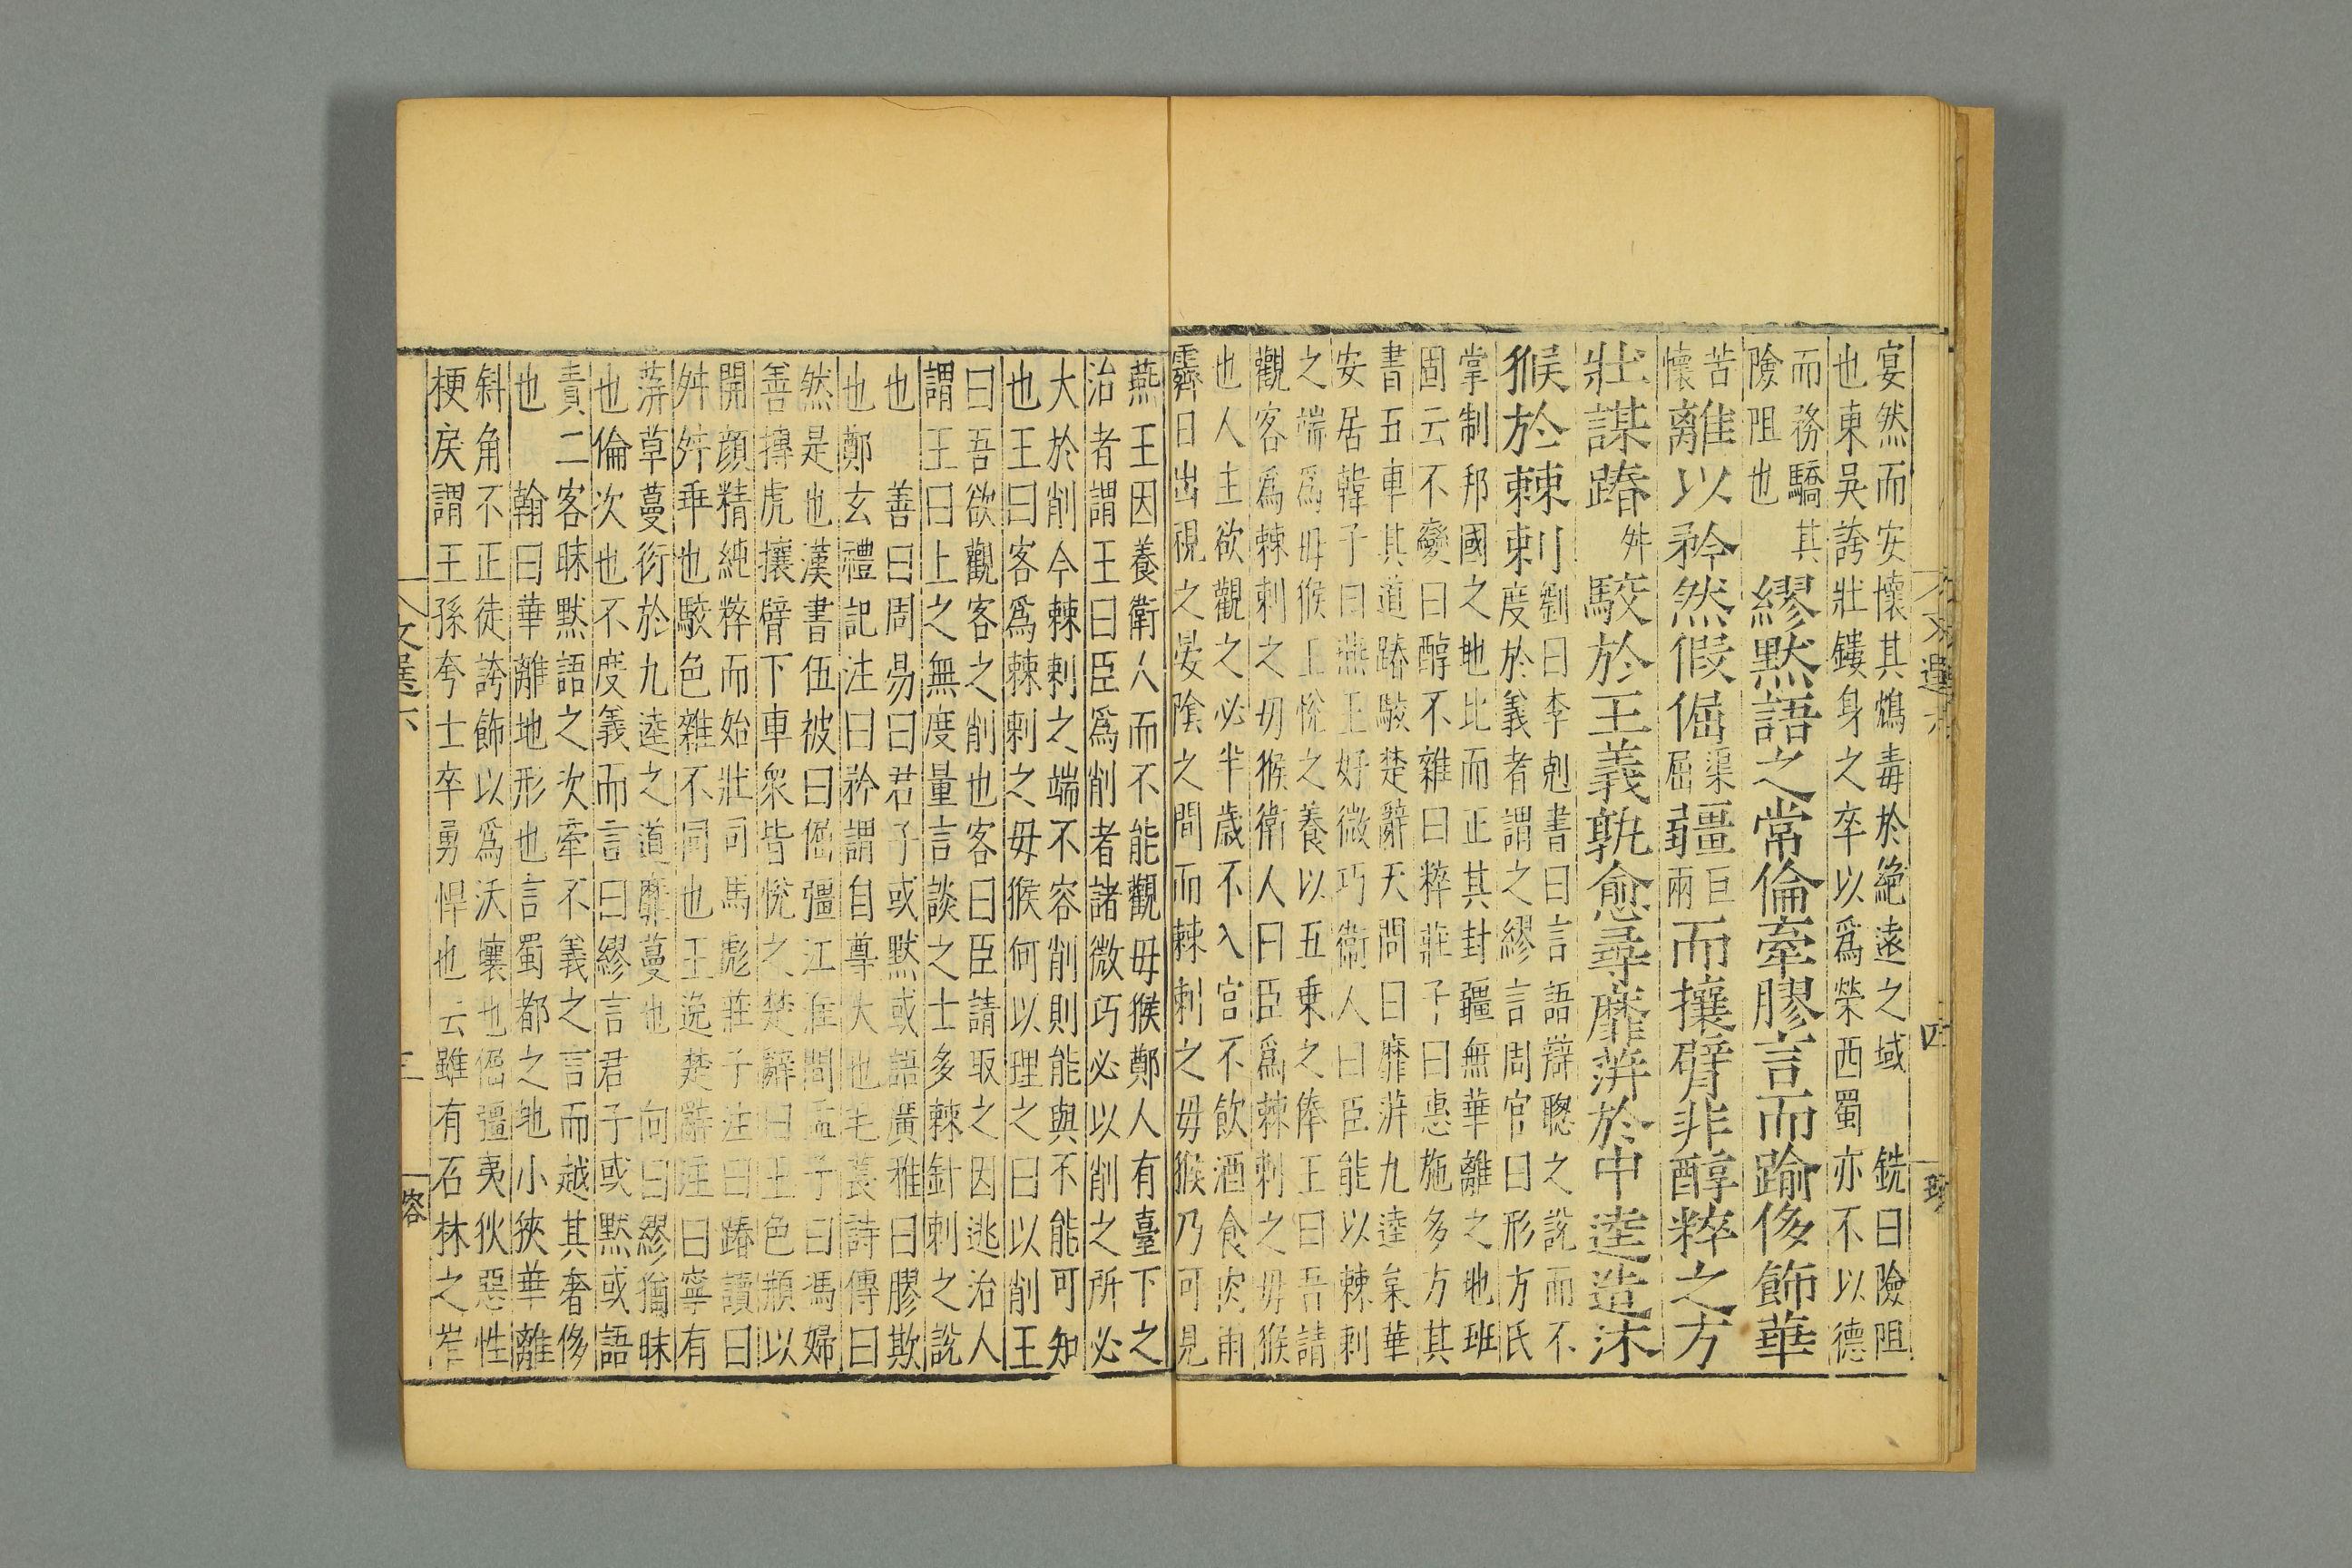 宴然而安懷其鴆毒於絶遠之域 銑曰險阻
也東吳誇壯鏤身之卒以爲榮西蜀亦不以德
而務驕其
險阻也
繆默語之常倫牽膠言而踰侈飾華
苦
懷
離以矜然假倔
渠
屈
疆
巨
兩
而攘臂非醇粹之方
壯謀踳
舛
駮於王義孰愈尋靡蓱於中逵造沐
猴於棘刺
劉曰李尅書曰言語辯聰之說而不
度於義者謂之繆言周官曰形方氏
掌制邦國之地比而正其封疆無華離之地班
固云不變曰醇不雜曰粹莊子曰惠施多方其
書五車其道踳駮楚辭天問曰靡蓱九逵枲華
安居韓子曰燕王好微巧衛人曰臣能以棘刺
之端爲毋猴王悅之養以五乗之俸王曰吾請
觀客爲棘刺之毋猴衛人曰臣爲棘刺之毋猴
也人主欲觀之必半歲不入宮不飲酒食肉雨
霽日出視之晏陰之間而棘刺之毋猴乃可見
文選六
四
燕王因養衛人而不能觀毋猴鄭人有臺下之
治者謂王曰臣爲削者諸微巧必以削之所必
大於削今棘刺之端不容削則能與不能可知
也王曰客爲棘刺之毋猴何以理之曰以削王
曰吾欲觀客之削也客曰臣請取之因逃治人
謂王曰上之無度量言談之士多棘針刺之說
也 善曰周易曰君子或默或語廣雅曰膠欺
也鄭玄禮記注曰矜謂自尊大也毛萇詩傳曰
然是也漢書伍被曰倔彊江淮間孟子曰馮婦
善搏虎攘臂下車衆皆悅之楚辭曰玉色頩以
開顔精純粹而始壯司馬彪莊子注曰踳讀曰
舛舛乖也駮色雜不同也王逸楚辭注曰寧有
蓱草蔓衍於九逵之道靡蔓也 向曰繆猶昧
也倫次也不度義而言曰繆言君子或默或語
責二客昧默語之次牽不義之言而越其奢侈
也 翰曰華離地形也言蜀都之地小狹華離
斜角不正徒誇飾以爲沃壤也倔彊夷狄惡性
梗戾謂王孫夸士卒勇悍也云雖有石林之岝
文選六
三